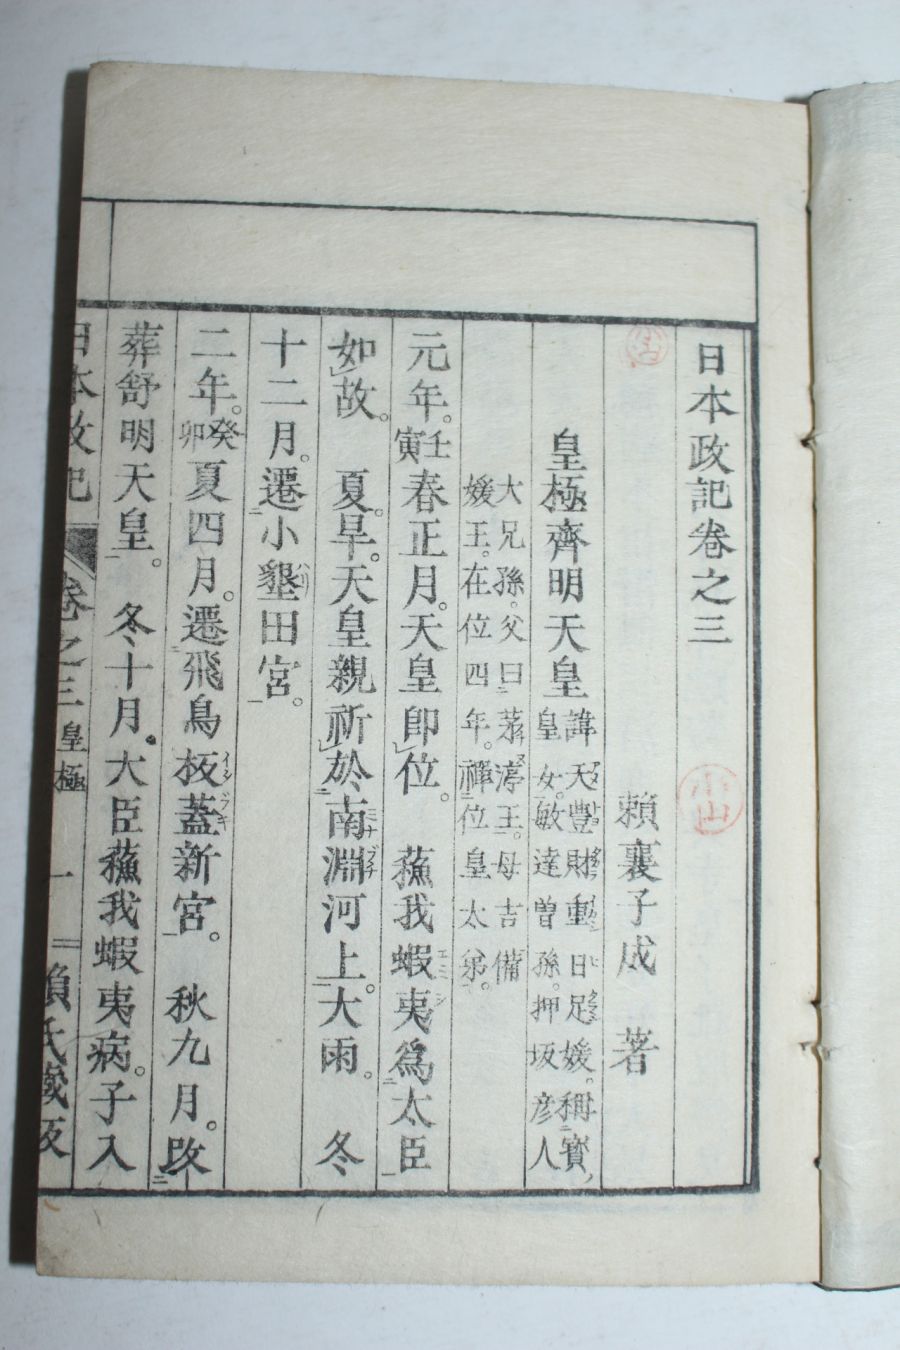 日本政記卷之三
賴襄子成　著
皇極齊明天皇 諱天豐財重日足媛。稱寶
皇女。敏達曾孫。押坂彥人
大兄孫。父曰茅渟王。母吉備
媛王。在位四年。禪位皇太弟。
元年。壬寅春正月。天皇即位。　蘓我蝦夷爲大臣
如故。　夏。旱。天皇親祈於南淵河上。大雨。　冬
十二月。遷小墾田宮。
二年。癸卯夏四月。遷飛鳥板蓋新宮。　秋九月。改
葬舒明天皇。　冬十月。大臣蘓我蝦夷病。子入
日本政記　卷之三　皇極　一　賴氏藏板
小山